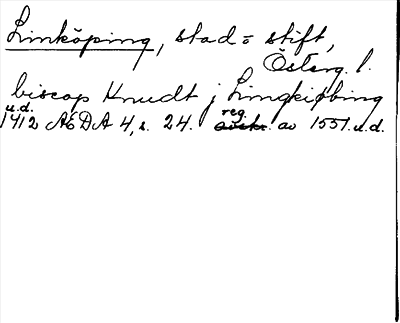 Linköping, stad = stift,
Österg. l.
biscop Knudt j Lingkiøbing
u.d.
1412 ÆDA 4, s. 24. reg. av 1551 u.d.